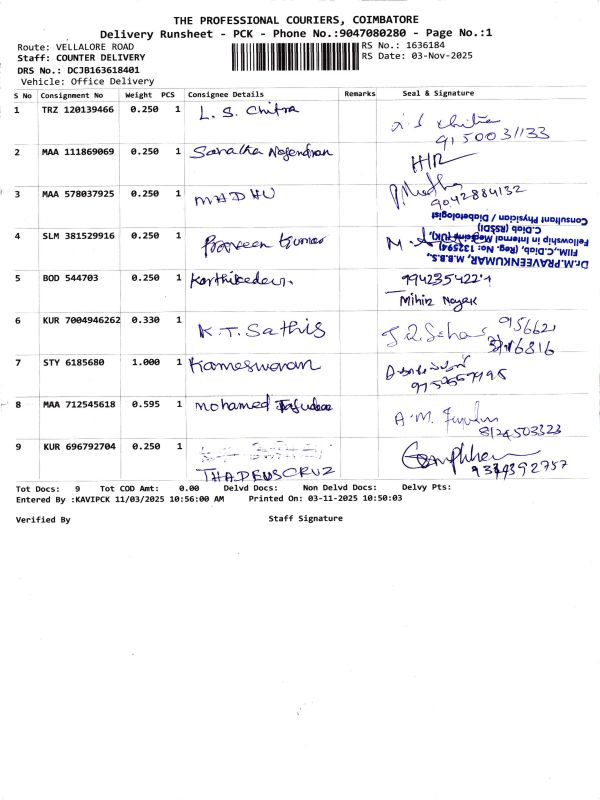 THE PROFESSIONAL COURIERS, COIMBATORE
Delivery Runsheet - PCK - Phone No.:9047080280 - Page No.:1
Route: VELLALORE ROAD
RS No.: 1636184
Staff: COUNTER DELIVERY
RS Date: 03-Nov-2025
DRS No.: DCJB163618401
Vehicle: Office Delivery
S No Consignment No Weight PCS Consignee Details Remarks Seal & Signature
1 TRZ 120139466 0.250 1 L. S. Chitra
9150031133
2 MAA 111869069 0.250 1 Saratha Nagendran
3 MAA 578037925 0.250 1 MADHU
9042884132
4 SLM 381529916 0.250 1 Praveen Kumar
Dr.M.PRAVEENKUMAR, M.B.B.S.,
FIIM.,C.Diab, (Reg. No: 132594)
Fellowship in Internal Medicine (UK),
C.Diab (RSSDI)
Consultant Physician / Diabetologist
5 BOD 544703 0.250 1
Mihir Nayak
6 KUR 7004946262 0.330 1 K.T. Sathis
7 STY 6185680 1.000 1 Kameswaran
8 MAA 712545618 0.595 1 mohamed
8124503323
9 KUR 696792704 0.250 1
THADEUSCRUZ
Tot Docs: 9 Tot COD Amt: 0.00 Delvd Docs: Non Delvd Docs: Delvy Pts:
Entered By :KAVIPCK 11/03/2025 10:56:00 AM Printed On: 03-11-2025 10:50:03
Verified By Staff Signature